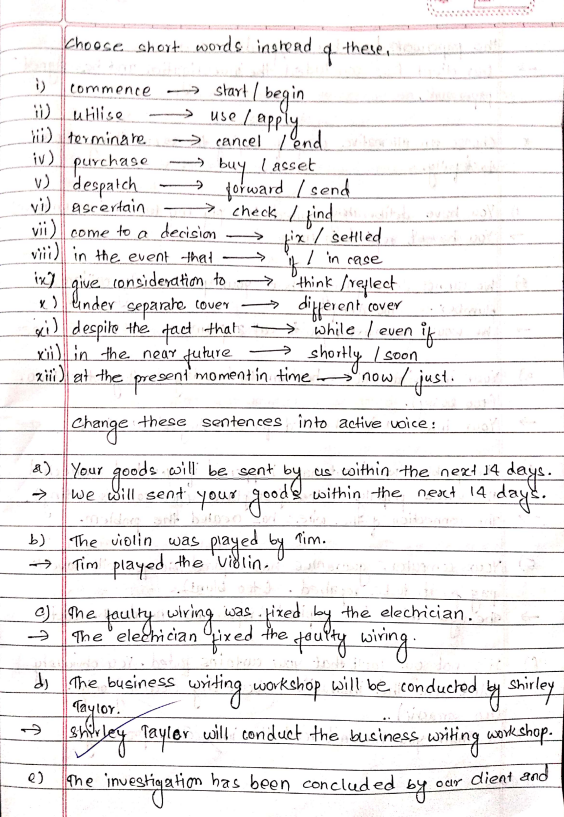 Choose short words instead of these.
i) commence → start / begin
ii) utilise → use / apply
iii) terminate → cancel / end
iv) purchase → buy / asset
v) despatch → forward / send
vi) ascertain → check / find
vii) come to a decision → fix / settled
viii) in the event that → if / in case
ix) give consideration to → think / reflect
x) under separate cover → different cover
xi) despite the fact that → while / even if
xii) in the near future → shortly / soon
xiii) at the present moment in time → now / just.
Change these sentences into active voice:
a) Your goods will be sent by us within the next 14 days.
→ We will sent your goods within the next 14 days.
b) The violin was played by Tim.
→ Tim played the violin.
c) The faulty wiring was fixed by the electrician.
→ The electrician fixed the faulty wiring.
d) The business writing workshop will be conducted by Shirley
Taylor.
→ Shirley Taylor will conduct the business writing workshop.
e) The investigation has been concluded by our client and